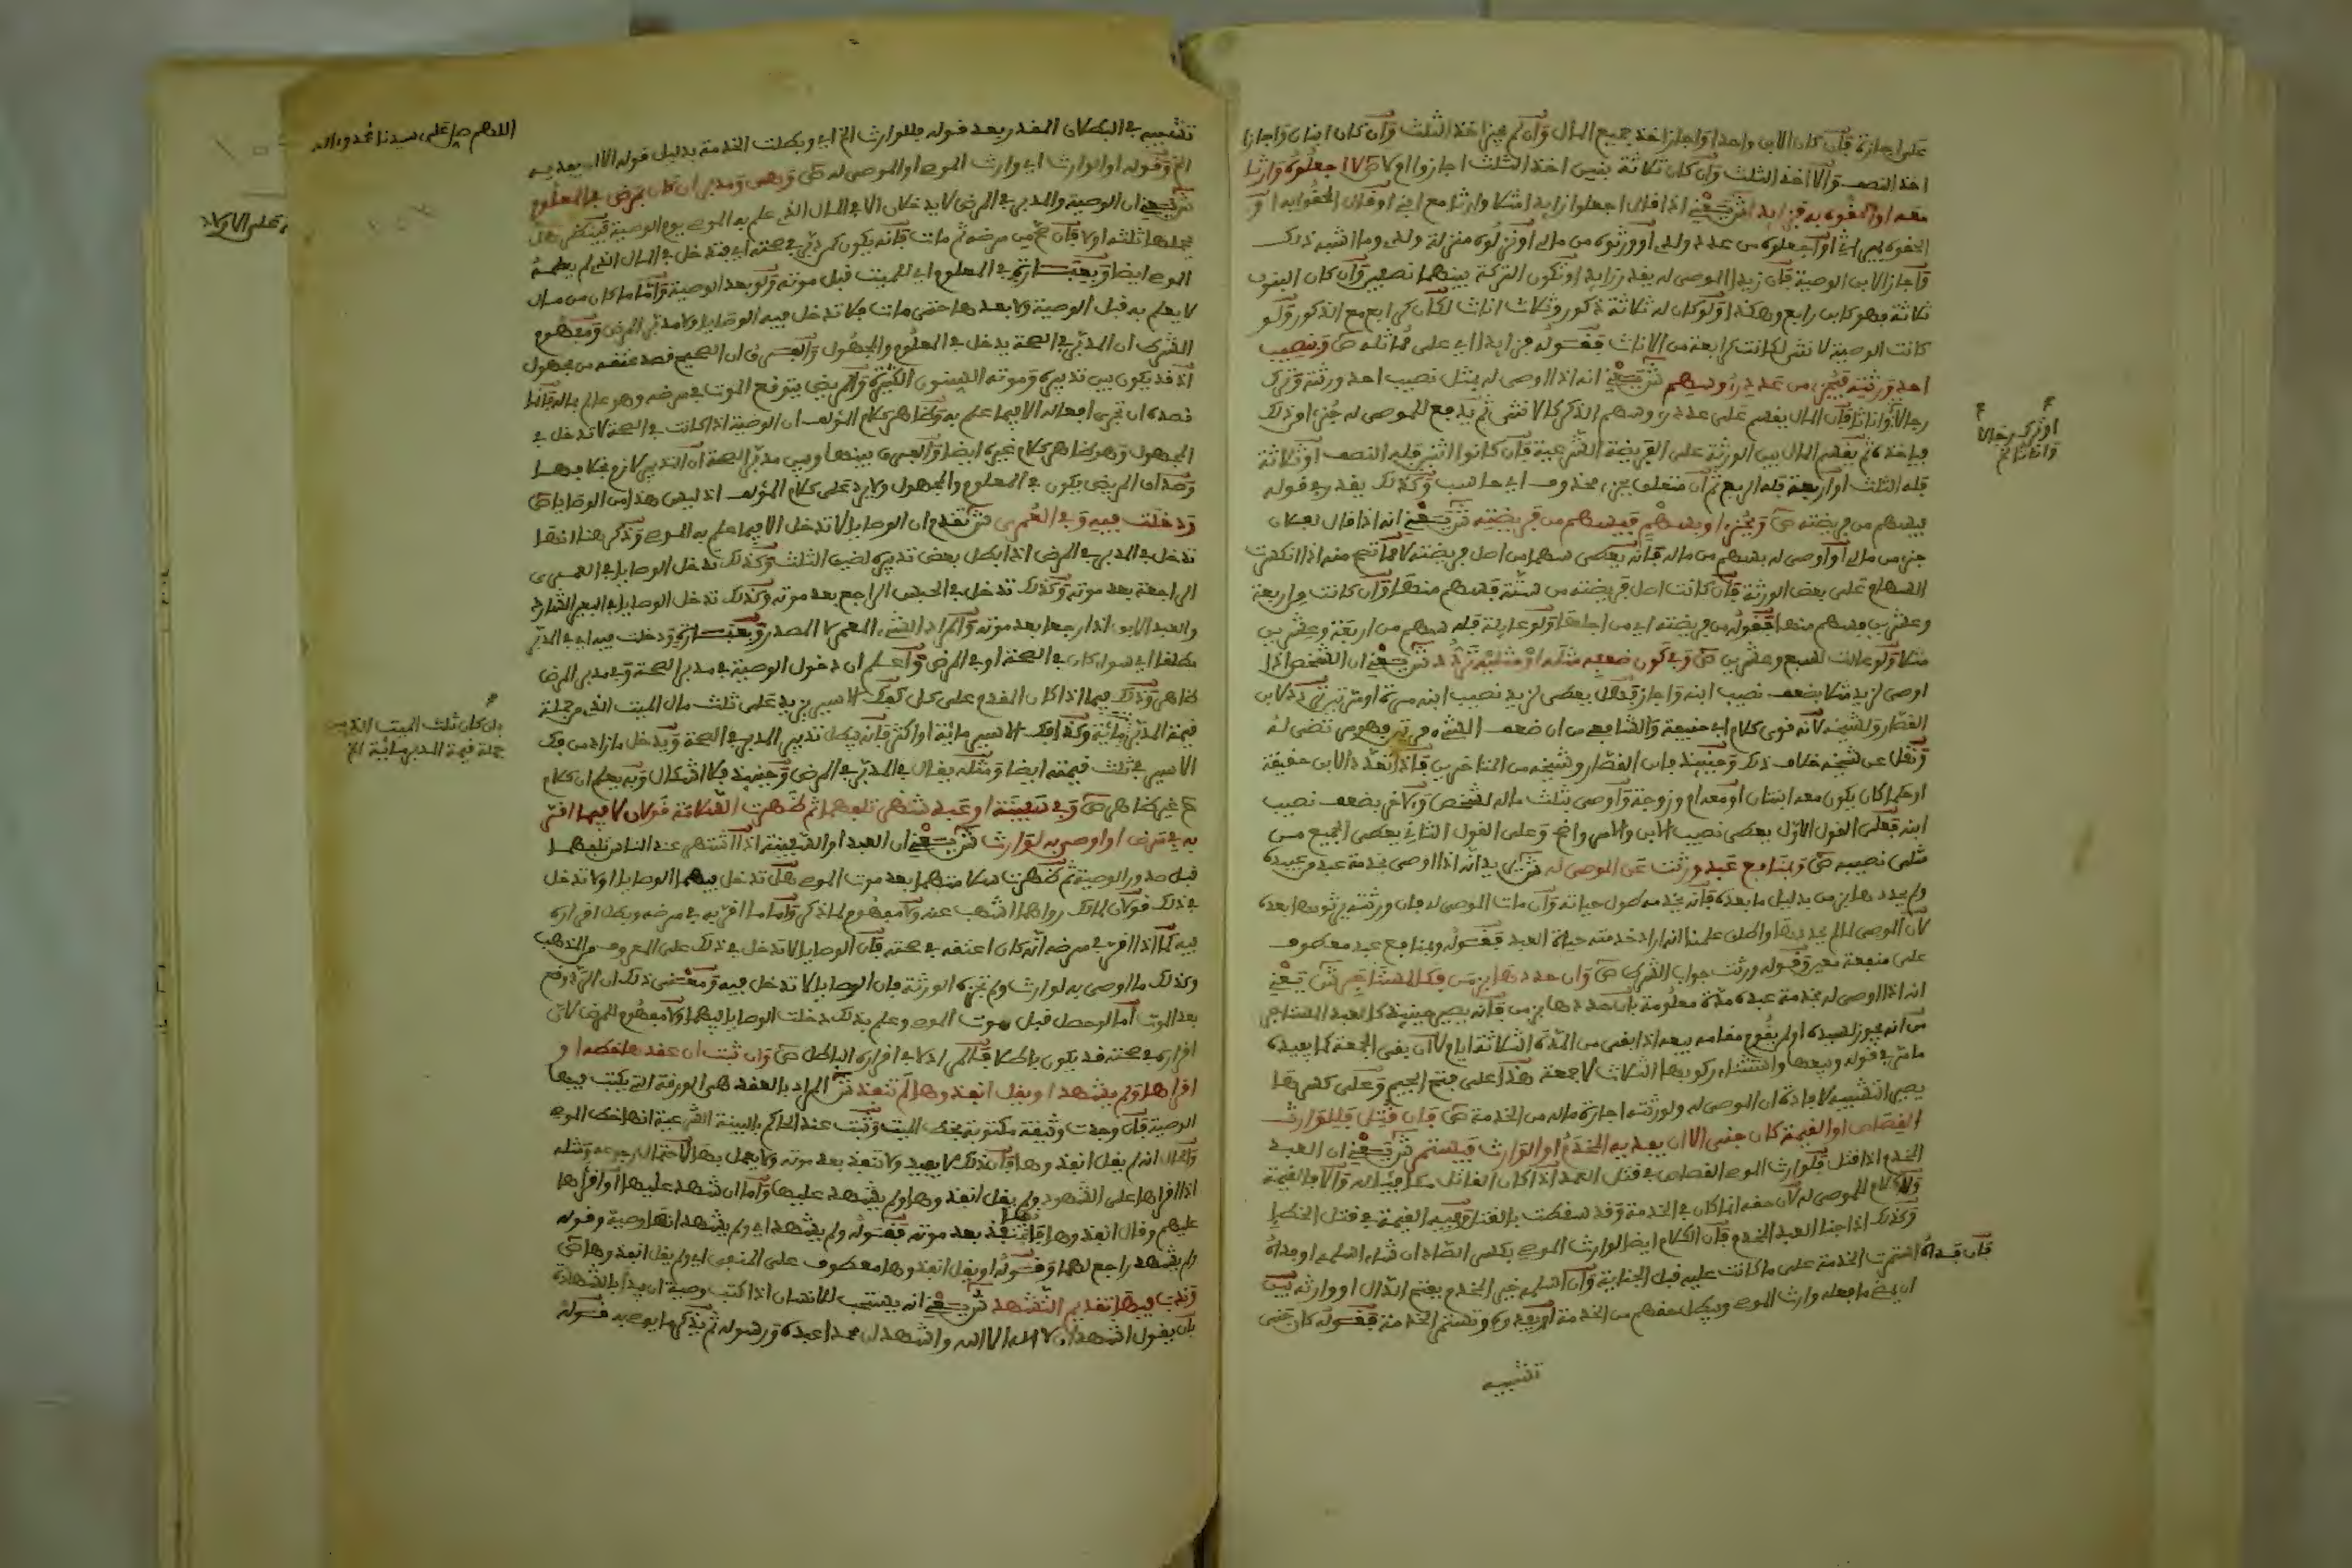 على اجازة فان كان الابن واحدا واجاز اخذ جميع المال وان لم يجز اخذ الثلث وان كان ابنان واجازا
اخذ النصف والا اخذ الثلث وان كان ثلاثة بنين اخذ الثلث اجازوا اولا ص لا اجعلوه وارثا
معه او الحقوه به فزايد ش يعني اذا قال اجعلوا زيدا مثلا وارثا مع ابني او قال الحقوا به او
الحقوه بميراثي او اجعلوه من عدد ولدي او ورثوه من مالي او نزلوه منزلة ولدي وما اشبه ذلك
فاجاز الابن الوصية فان زيدا الموصى له يقدر زايدا وتكون التركة بينهما نصفين وان كان البنون
ثلاثة فهو كابن رابع وهكذا ولو كان له ثلاثة ذكور وثلاث اناث لكان كرابع مع الذكور ولو
كانت الوصية لانثى لكانت كرابعة من الاناث فقوله فزايدا اي على مماثله ص وبنصيب
احد ورثته فبجزء من عدد رؤوسهم ش يعني انه اذا اوصى له بمثل نصيب احد ورثته وترك
رجالا واناثا فان المال يقسم على عدد رؤوسهم الذكر كالانثى ثم يدفع للموصى له جزء او ذلك
فياخذه ثم يقسم المال بين الورثة على الفريضة الشرعية فان كانوا اثنين فله النصف او ثلاثة
فله الثلث او اربعة فله الربع ثم ان متعلق بجزء محذوف اي حاسب وكذلك يقدر في قوله
فبسهم من فريضته ص وبجزء او بسهم فبسهم من فريضته ش يعني انه اذا قال لفلان
جزء من مالي او اوصى له بسهم من ماله فانه يعطى سهما من اصل فريضته لا مما تصح منه اذا انكسرت
السهام على بعض الورثة فان كانت اصل فريضته من ستة فسهم منها وان كانت من اربعة
وعشرين فسهم منها فقوله من فريضته اي من اصلها ولو عايلة فله سهم من اربعة وعشرين
مثلا ولو عالت لسبع وعشرين ص وفي كون ضعفه مثله او مثليه تردد ش يعني ان الشخص اذا
اوصى لزيد مثلا بضعف نصيب ابنه واجاز ذلك يعطى لزيد نصيب ابنه مرة او مرتين تردد لابن
القصار ولشيخه لانه قوى كلام ابي حنيفة والشافعي من ان ضعف الشيء مرتين
ونقل عن شيخه خلاف ذلك وحينئذ فابن القصار وشيخه من المتاخرين فاذا تعدد الابن حقيقة
او حكما كان يكون معه ابنتان او معه ام وزوجة واوصى بثلث ماله لشخص ولاخر بضعف نصيب
ابنه فعلى القول الاول يعطى نصيب الابن والامر واضح وعلى القول الثاني يعطى الجميع من
مثلي نصيبه ص وبمنافع عبد ورثت عن الموصى له ش يريد انه اذا اوصى بخدمة عبد من عبيده
ولم يحدد بزمن بدليل ما بعده فانه يخدمه طول حياته وان مات الموصى له فان ورثته يرثونها بعده
لان الموصي لما لم يحددها واطلق علمنا انه اراد خدمته حياة العبد فقوله وبمنافع عبد معطوف
على منفعة وقوله ورثت جواب الشرط ص وان حددها بزمن فكالمستاجر ش يعني
انه اذا اوصى له بخدمة عبده مدة معلومة بان حددها بزمن فانه يصير حينئذ كالعبد المستاجر
من انه يجوز لسيده او لم يقوم مقامه بيعه اذا بقي من المدة الثلاثة ايام لا ان بقي الجمعة كما يفيده
ما مر في قوله وبيعها واستثناء ركوبها الثلاث لا جمعة هذا على فتح الجيم وعلى كسرها
يصير التشبيه لافادة ان الموصى له ولورثته اجارة ماله من الخدمة ص فان قتل فللوارث
القصاص او القيمة كان جنى الا ان يفديه المخدم او الوارث فيستمر ش يعني ان العبد
المخدم اذا قتل فلوارث الموصي القصاص في قتل العمد اذا كان القاتل مكافئا له والا فالقيمة
ولا كلام للموصى له لان حقه انما كان في الخدمة وقد سقطت بالقتل وفيه القيمة في قتل الخطا
وكذلك اذا جنى العبد المخدم فان الكلام ايضا لوارث الموصي بكسر الصاد ان شاء اسلمه او فداه
فان فداه استمرت الخدمة على ما كانت عليه قبل الجناية وان اسلمه خير المخدم بفتح الدال او وارثه بين
ان يمضي ما فعله وارث الموصي ويبطل حقهم من الخدمة او يفدوه وتستمر الخدمة فقوله كان جنى
تشبيه
او ترك رجالا
واناثا الخ
تشبيه في البطلان المقدر بعد قوله فللوارث الخ اي وبطلت الخدمة بدليل قوله الا ان يفديه
الخ وقوله او الوارث اي وارث الموصي او الموصى له ص وهي ومدبر ان كان بمرض في المعلوم
ش يعني ان الوصية والمدبر في المرض لا يدخلان الا في المال الذي علم به الموصي يوم الوصية فينظر هل
يحملها ثلثه او لا فان صح من مرضه ثم مات فانه يكون كمدبر في صحته اي فيدخل في المال الذي لم يعلمه
الموصي ايضا ويعتبر في المعلوم اي للميت قبل موته ولو بعد الوصية واما ما كان من مال
لا يعلم به قبل الوصية ولا بعدها حتى مات فلا تدخل فيه الوصايا ولا مدبر المرض ومفهوم
الشرط ان المدبر في الصحة يدخل في المعلوم والمجهول والفرق ان الصحيح قصد عتقه من مجهول
اذ قد يكون بين تدبيره وموته السنون الكثيرة والمريض يتوقع الموت في مرضه وهو عالم بماله فانما
قصده ان تجري افعاله الا فيما علم به وظاهر كلام المؤلف ان الوصية اذا كانت في الصحة لا تدخل في
المجهول وهو ظاهر كلام غيره ايضا والفرق بينهما وبين مدبر الصحة ان التدبير لازم بخلافها
وصداق المريض يكون في المعلوم والمجهول ولا يرد على كلام المؤلف اذ ليس هذا من الوصايا ص
ودخلت فيه وفي العمرى ش تقدم ان الوصايا لا تدخل الا فيما علم به الموصي وذكر هنا انها
تدخل في المدبر في المرض اذا بطل بعض تدبيره لضيق الثلث وكذلك تدخل الوصايا في العمرى
الراجعة بعد موته وكذلك تدخل في الحبس الراجع بعد موته وكذلك تدخل الوصايا في البعير الشارد
والعبد الابق اذا رجعا بعد موته والمراد الشيء المعمر لا المصدر ودخلت فيه اي في المدبر
مطلقا اي سواء كان في الصحة او في المرض واعلم ان دخول الوصية في مدبر الصحة وفي مدبر المرض
ظاهر وذلك فيما اذا كان القدوم على كل كفك الاسير يزيد على ثلث مال الميت الذي من جملة
قيمة المدبر مائة وكذا فك الاسير مائة او اكثر فانه يبطل تدبير المدبر في الصحة ويدخل مازاد من فك
الاسير في ثلث قيمته ايضا ومثله يقال في المدبر في المرض وحينئذ فلا اشكال وبه يعلم ان كلام
ح غير ظاهر ص وفي سفينة او عبد شهر تلفهما ثم ظهرت السلامة قولان لا فيما اقر
به في مرض او اوصى به لوارث ش يعني ان العبد او السفينة اذا اشتهر عند الناس تلفهما
قبل صدور الوصية ثم ظهرت سلامتهما بعد موت الموصي هل تدخل فيهما الوصايا او لا تدخل
في ذلك قولان لمالك رواهما اشهب عنه ولا مفهوم لما ذكر واما ما اقر به في مرضه وبطل اقراره
فيه كما اذا اقر في مرضه انه كان اعتقه في صحته فان الوصايا لا تدخل في ذلك على المعروف من المذهب
وكذلك ما اوصى به لوارث ولم تجزه الورثة فان الوصايا لا تدخل فيه ومقتضى ذلك ان الرد وقع
بعد الموت اما لو حصل قبل موت الموصي وعلم بذلك دخلت الوصايا فيهما ولا مفهوم للمرض لان
اقراره في صحته قد يكون باطلا فالمراد كل اقراره الباطل ص وان ثبت ان عقدها خطه او
اقراها ولم يشهد او يقل انفذوها لم تنفذ ش المراد بالعقد هي الورقة التي يكتب فيها
الوصية فان وجدت وثيقة مكتوبة بخط الميت وثبت عند الحاكم بالبينة الشرعية انها خط الموصي
والحال انه لم يقل انفذوها فان ذلك لا يفيد ولا تنفذ بعد موته ولا يعمل بها لاحتمال رجوعه ومثله
اذا اقراها على الشهود ولم يقل انفذوها ولم يشهد عليها واما ان شهد عليها او اقراها
عليهم وقال انفذوها فانها تنفذ بعد موته فقوله ولم يشهد اي ولم يشهد انها وصية وقوله
ولم يشهد راجع لهما وقوله او يقل انفذوها معطوف على المنفي اي ولم يقل انفذوها ص
وندب فيها تقديم التشهد ش يعني انه يستحب للانسان اذا كتب وصية ان يبدا بالشهادة
بان يقول اشهد ان لا اله الا الله واشهد ان محمدا عبده ورسوله ثم يذكر ما يوصي به قوله
اللهم صل على سيدنا محمد واله
على الاولاد
بان كان ثلث الميت الذي من
جملة قيمة المدبر مائة الخ